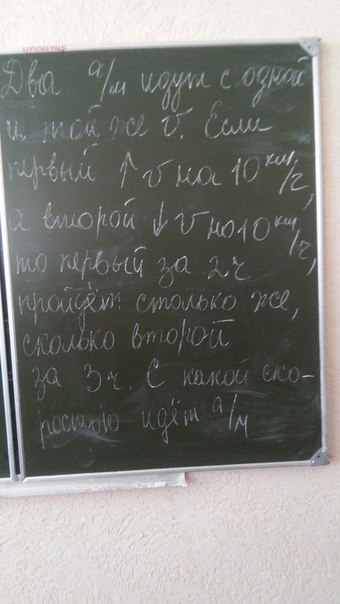 Два а/м идут с одной
и той же v. Если
первый ↑ v на 10 км/ч,
а второй ↓ v на 10 км/ч,
то первый за 2ч
пройдёт столько же,
сколько второй
за 3ч. С какой ско-
ростью идёт а/м